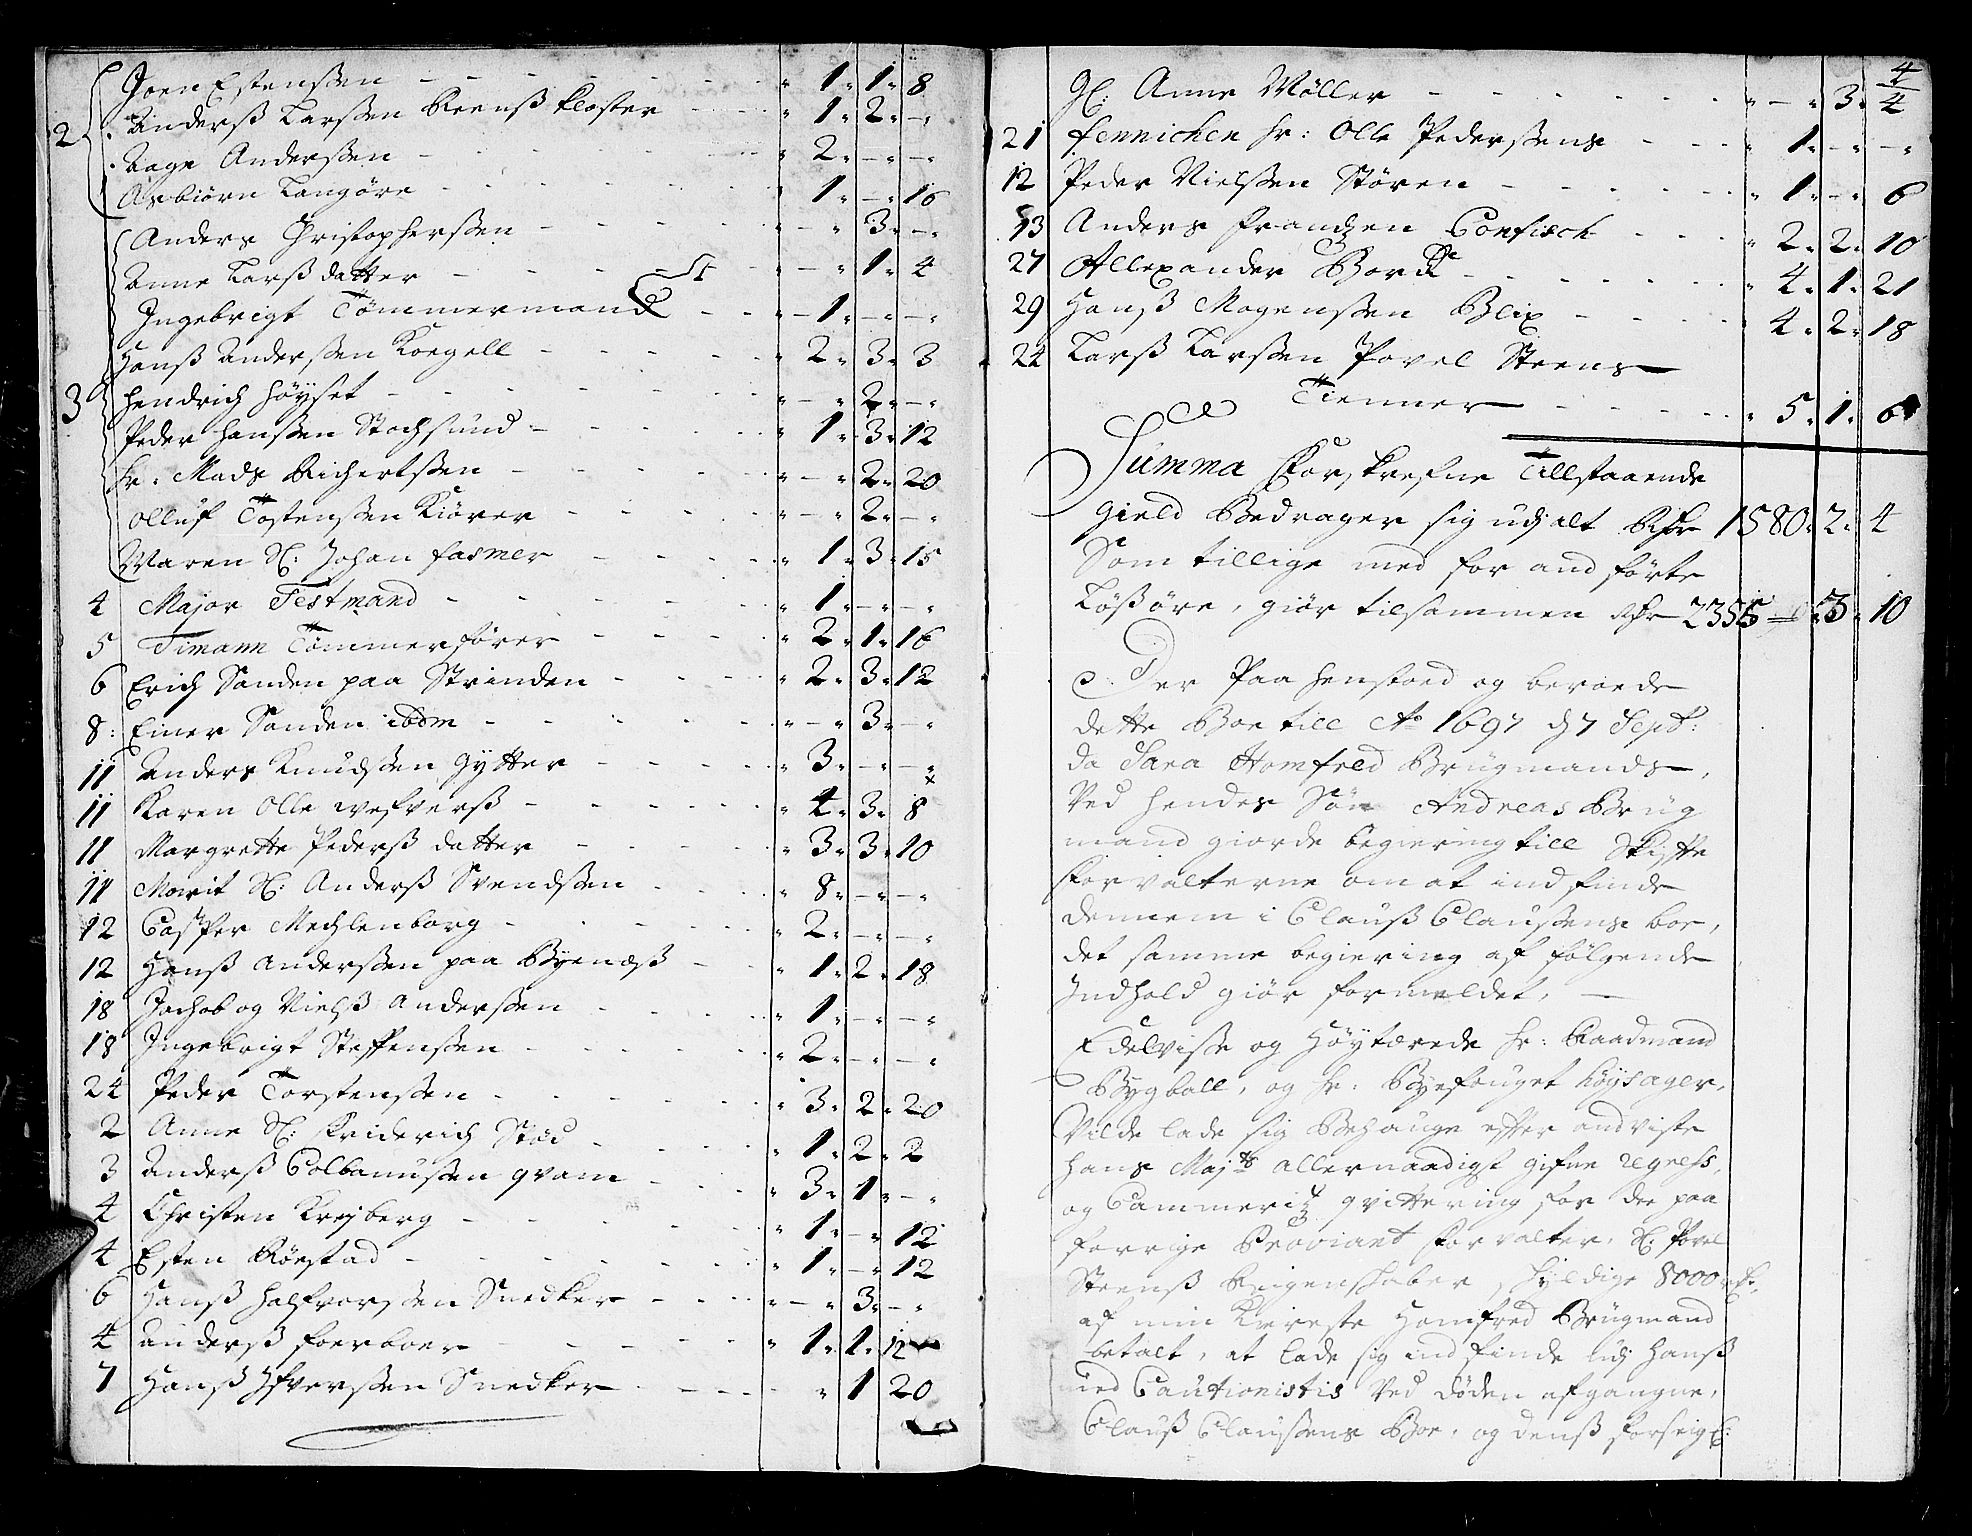 Joen Estenssen - - - - - " 1" 1" 8
2 Anderss Larssen Reenss Kloster - - " 1" 2" -"
Aage Anderssen - - - - " 2" -" -"
Asbiørn Langøre - - - - " 1" -" 16
Anders Christopherssen - - - " - " 3" -"
Anne Larss datter - - - - " - " 1" 4
Ingebrigt Tømmermand - - " 1" -" -"
Hanss Anderssen Koegell - - - " 2" 3" 3
3 Hendrich Høyset - - - - " - " 2" -"
Peder Hanssen Stochsund - - - " 1" 3" 12
Hr: Mads Richertssen - - - " - " 2" 20
Olluf Tostenssen Kiører - - - " - " 2" -"
Maren Sl: Johan fasmer - - - " 1" 3" 15
4 Major Testmand - - - - " 1" -" -"
5 Timann Tømmerfører - - - " 2" 1" 16
6 Erich Sanden paa Strinden - - - " 2" 3" 12
8: Einer Sanden ibdm - - - - " - " 3" -"
11 Anders Knudssen Gytter - - - " 3" -" -"
11 Karen Olle wefverss - - - - " 4" 3" 8
11 Margrette Pederss datter - - - " 3" 3" 10
11 Marit Sl: Anderss Svendssen - - " 8" -" -"
12 Casper Mechlenborg - - - - " 2" -" -"
12 Hanss Anderssen paa Byenæss - - " 1" 2" 18
18 Jachob og Nielss Anderssen - - - " 1" -" -"
18 Ingebrigt Steffenssen - - - - " 2" -" -"
24 Peder Torstenssen - - - - " 3" 2" 20
2 Anne Sl: Friderich Stød - - - " 1" 2" 2
3 Anderss Colbanussen qvam - - - " 3" 1" -"
4 Christen Krejberg - - - - " 1" -" 12
4 Esten Røestad - - - - " 1" -" 12
6 Hanss Halfvorssen Snedker - - - " - " 3" -"
4 Anderss foerboer - - - - " 1" 1" 12
7 Hanss Ifverssen Snedker - - - " 1 20
4
Gl: Anne Møller - - - - " - " 3" 4
21 fennichen Hr: Olle Pederssens - - " 1" -" -"
12 Peder Nielssen Støren - - - " 1" -" 6
13 Anders frandzen Confisch - - - " 2" 2" 10
27 Allexander Bord - - - - " 4" 1" 21
29 Hanss Mogenssen Blix - - - " 4" 2" 18
24 Larss Larssen Povel Steens
Tienner - - - - " 5" 1" 6
Summa forskrefne Tillstaaende
Gield Bedrager sig udj alt Rdr 1580" 2" 4
Som tillige med for and førte
Løssøre, giør tilsammen Rdr 2355 " 3" 10
Der Paa henstoed og beroede
dette Boe till Ao 1697 d 7 Sept:
da Sara Homfred Brügmands,
Ved hendes Søn Andreas Brüg
mand giorde begiering till Skifte
forvalterne om at indfinde
dennem i Clauss Claussens boe,
det samme begiering af følgende
Indhold giør formeldet, -
Edelvisse og Høytærede Hr: Raadmand
Bygball, og Hr: Byefouget Høysager,
Vilde lade sig Behauge effter andviste
Hans Majts allernaadigst gifne regress,
og Cammeritz qvittering for dee paa
forrige Proviant forvalter, Sl: Povel
Steenss Reigenskaber, skyldige 8000 rdr,
af min Kiereste Homfred Brügmand
betalt, at lade sig indfinde udj Hanss
med Cautionistis Ved døden afgangne,
Clauss Claussens Boe, og denss forseigl: